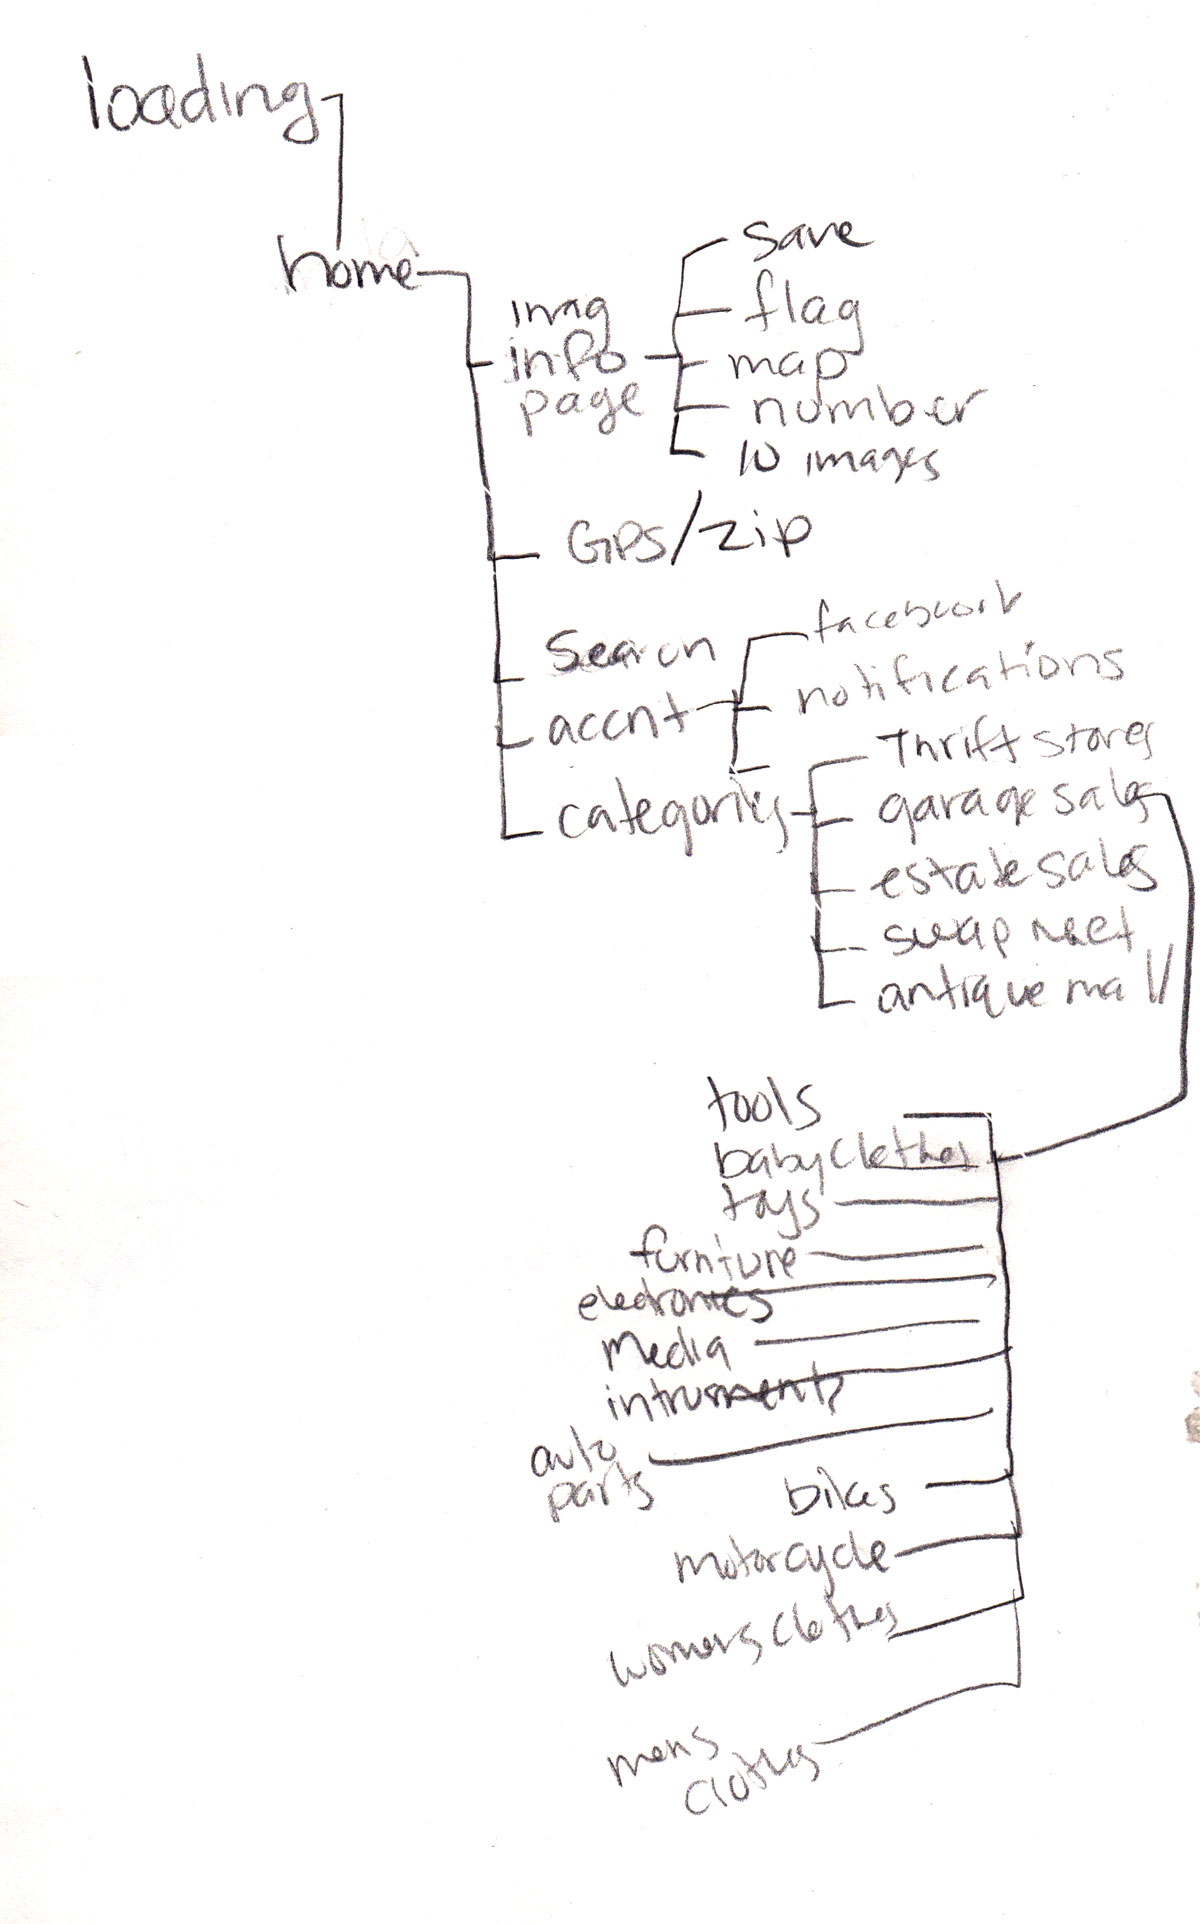 loading
home
imag
info
page
save
flag
map
number
10 images
GPS/zip
Search
accnt
facebook
notifications
categories
Thrift stores
garage sales
estate sales
swap meet
antique mall
tools
baby clothes
toys
furniture
electronics
media
intruments
auto
parts
bikes
motorcycle
womens clothes
mens
clothes